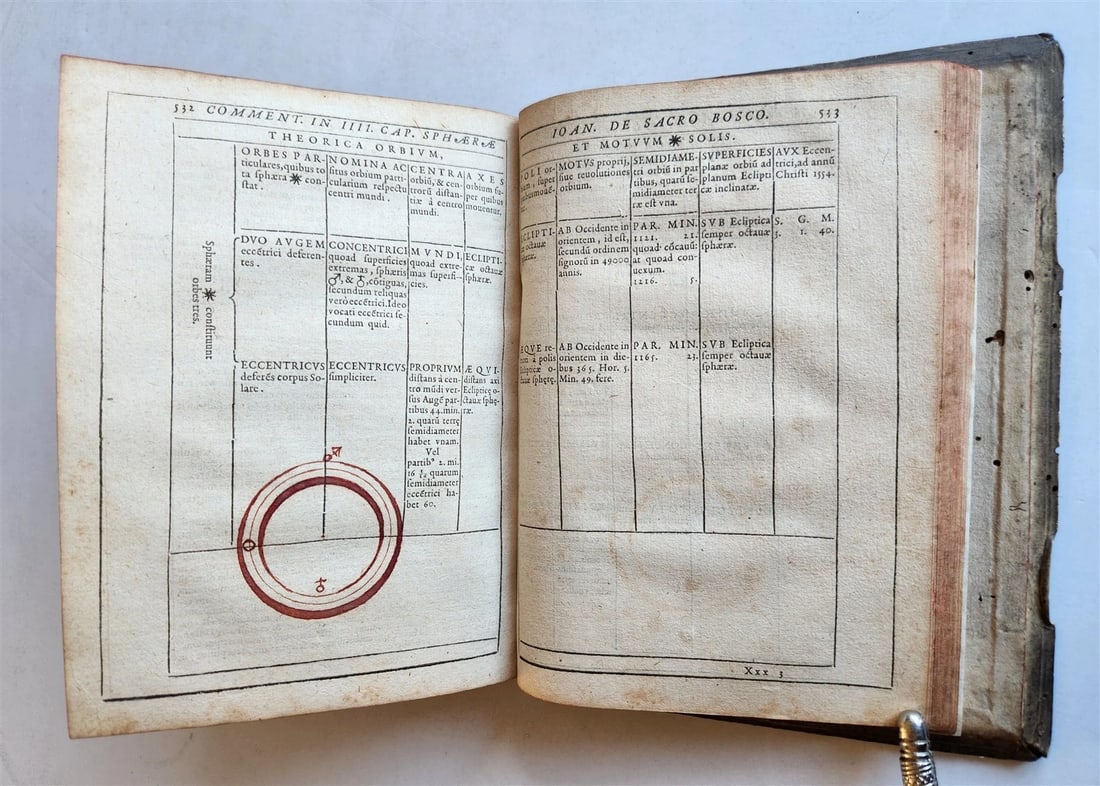 532 COMMENT. IN IIII. CAP. SPHÆRÆ
THEORICA ORBIUM,
ORBES PAR-
ticulares, quibus to
ta sphæra ✷ con-
stat.
NOMINA AC
situs orbium parti-
cularium respectu
centri mundi.
CENTRA
orbiū, & cen-
trorū distan-
tiæ à centro
mundi.
AXES
orbium su-
per quibus
mouentur.
Sphæram ✷ constituunt
orbes tres.
DVO AVGEM
eccētrici deferen-
tes.
CONCENTRICI
quoad superficies
extremas, sphæris
♂, & ♀, cōtiguas,
secundum reliquas
verò eccētrici. Ideo
vocati eccētrici se-
cundum quid.
MVNDI,
quoad extre-
mas superfi-
cies.
ECLIPTI-
cæ octauæ
sphæræ.
ECCENTRICVS
deferēs corpus So-
lare.
ECCENTRICVS
simpliciter.
PROPRIVM
distans à cen-
tro mūdi ver-
sus Augē par-
tibus 44. min.
2. quarū terrę
semidiameter
habet vnam.
Vel
partibꝰ 2. mi.
16 quarum
semidiameter
eccētrici ha-
bet 60.
ÆQVI-
distans axi
Eclipticę o-
ctauæ sphę-
ræ.
♂
♀
IOAN. DE SACRO BOSCO. 533
ET MOTVVM ✷ SOLIS.
POLI or-
super
MOTVS proprij,
siue reuolutiones
orbium.
SEMIDIAME-
tri orbiū in par
tibus, quarū se-
midiameter ter
ræ est vna.
SVPERFICIES
planæ orbiū ad
planum Eclipti
cæ inclinatæ.
AVX Eccen-
trici, ad annū
Christi 1554.
ECLIPTI-
octauæ
AB Occidente in
orientem, id est,
secundū ordinem
signorū in 49000
annis.
PAR. MIN.
1121. 21.
quoad cōcauū:
at quoad con-
uexum.
1216. 5.
SVB Ecliptica
semper octauæ
sphæræ.
S. G. M.
3. 1. 40.
ÆQVE re-
à polis
Eclipticæ o-
ctauæ sphęrę.
AB Occidente in
orientem in die-
bus 365. Hor. 5.
Min. 49. fere.
PAR. MIN.
1165. 23.
SVB Ecliptica
semper octauæ
sphæræ.
Xxx 3